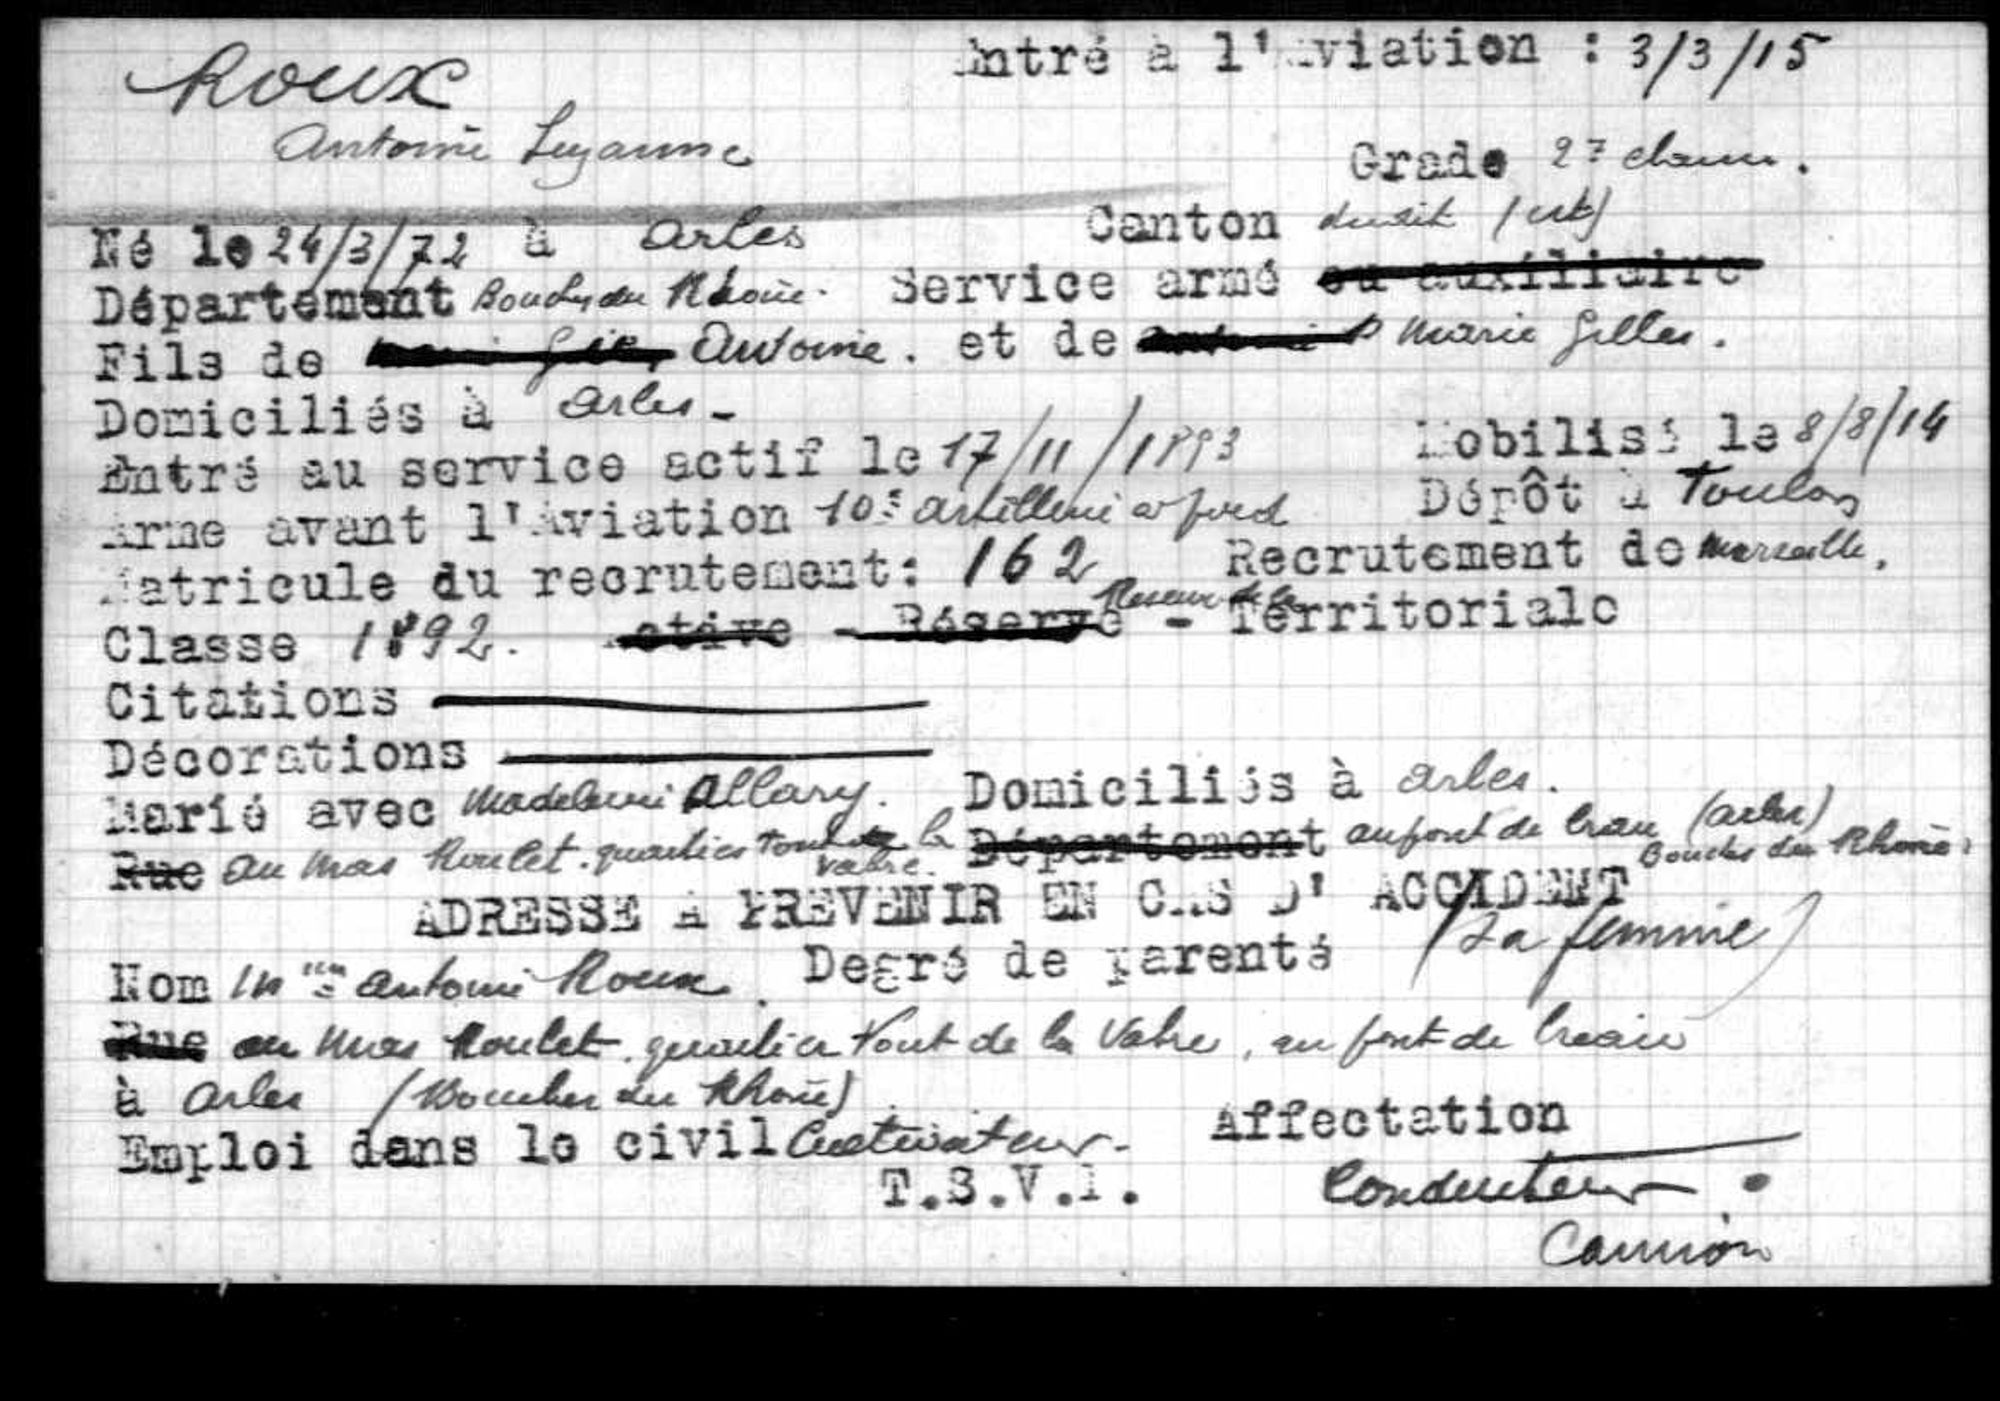 Roux
Entré à l'Aviation : 3/3/15
Antoine
Grade 2e
Né le 24/3/72 à Arles Canton dudit (est)
Département Bouches du Rhône. Service armé ou auxiliaire
Fils de Antoine. et de Marie Gilles.
Domiciliés à Arles -
Entré au service actif le 17/11/1893 Mobilisé le 8/8/14
Arme avant l'Aviation 10e artillerie à pied Dépôt à Toulon
Matricule du recrutement: 162 Recrutement de Marseille.
Classe 1892. Active - Réserve - Réserve de la Territoriale
Citations
Décorations
Marié avec Madeleine Allary. Domiciliés à Arles.
Rue au Mas Roulet. quartier de la Département au pont de Crau (Arles)
Bouches du Rhône
ADRESSE A PREVENIR EN CAS D' ACCIDENT
Nom Mme Antoine Roux. Degré de parenté (sa femme)
Rue au Mas Roulet. quartier de la, au pont de Crau
à Arles (Bouches du Rhône)
Emploi dans le civil Cultivateur - Affectation
T.S.V.P. Conducteur
Camion